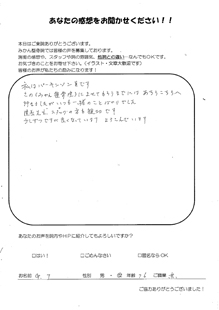 あなたの感想をお聞かせください！！
本日はご来院ありがとうございます。
みかん整骨院では皆様の声を募集しています。
施術の感想、スタッフや院の雰囲気、他院との違い…なんでもOKです。
お気づきのことをお寄せください。（イラスト・文章大歓迎です）
皆様のお声が私たちの励みになります！
私はパーキンソン病です
このみかん整骨院さんによせてもらうまでには あちらこちらへ
行きましたが いつも一緒のことばかりでした
院長先生、スタッフの方も親切です
少しずつですが良くなっています よろこんでいます
あなたのお声を院内やHPに紹介してもよろしいですか？
□はい！ □ごめんなさい □匿名ならOK
お名前 性別 男・女 年齢 76 ご職業
ご協力ありがとうございました！